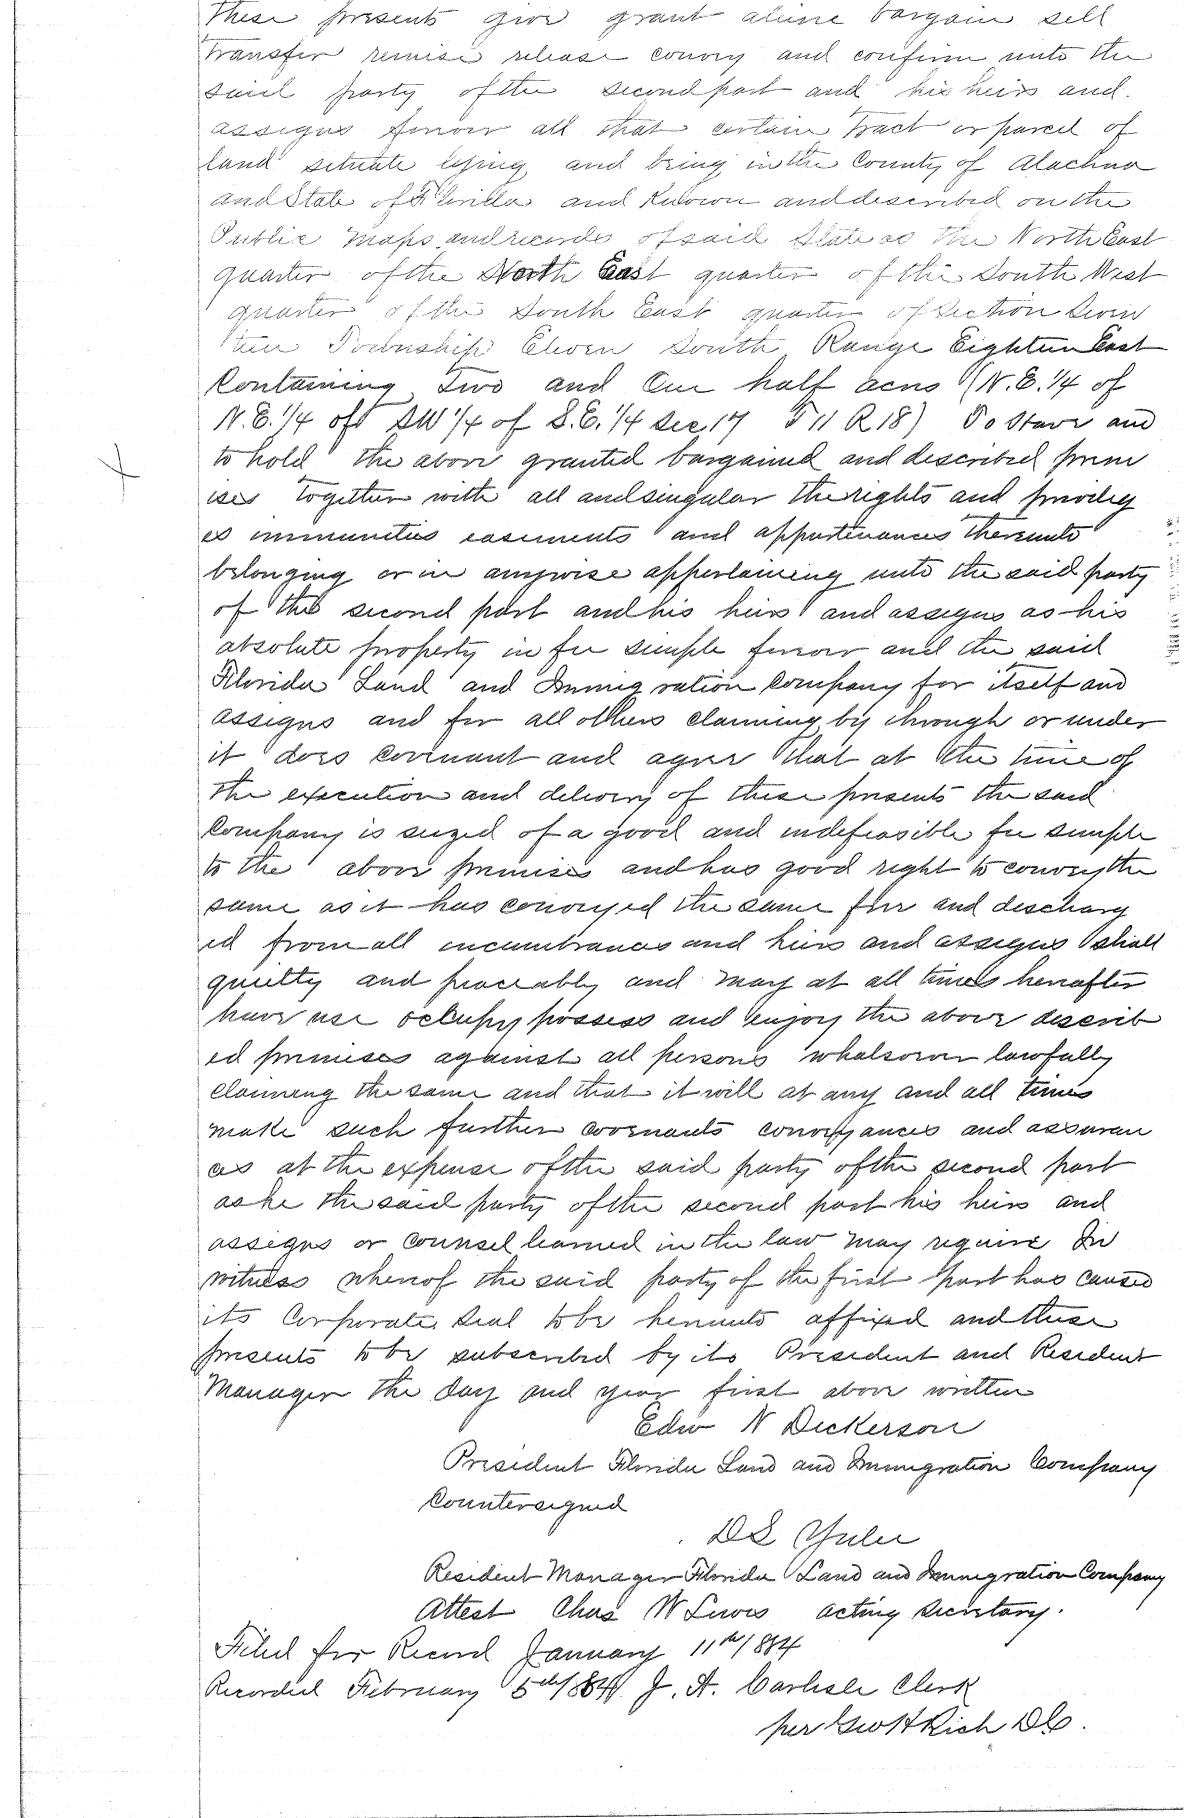 These presents give grant aliene bargain sell
transfer remise release convey and confirm unto the
said party of the second part and his heirs and
assigns forever all that certain Tract or parcel of
land situate lying and being in the County of Alachua
and State of Florida and known and described on the
Public Maps and records of said State as the North East
quarter of the North East quarter of the South West
quarter of the South East quarter of Section Seven
teen Township Eleven South Range Eighteen East
Containing Two and One half acres (N.E. 1/4 of
N.E. 1/4 of SW 1/4 of S.E. 1/4 Sec 17 T 11 R 18) To Have and
to hold the above granted bargained and described prem
ises together with all and singular the rights and privileg
es immunities easements and appurtenances thereunto
belonging or in anywise appertaining unto the said party
of the second part and his heirs and assigns as his
absolute property in fee simple forever and the said
Florida Land and Immigration Company for itself and
assigns and for all others claiming by through or under
it does covenant and agree that at the time of
the execution and delivery of these presents the said
Company is seized of a good and indefeasible fee simple
to the above premises and has good right to convey the
same as it has conveyed the same free and discharg
ed from all incumbrances and heirs and assigns shall
quietly and peaceably and may at all times hereafter
have use occupy possess and enjoy the above describ
ed premises against all persons whatsoever lawfully
claiming the same and that it will at any and all times
make such further covenants conveyances and assuran
ces at the expense of the said party of the second part
as he the said party of the second part his heirs and
assigns or counsel learned in the law may require In
witness whereof the said party of the first part has caused
its Corporate Seal to be hereunto affixed and these
presents to be subscribed by its President and Resident
Manager the day and year first above written
Edw N Dickerson
President Florida Land and Immigration Company
Countersigned
D L Yulee
Resident Manager Florida Land and Immigration Company
Attest Chas W Lewis acting Secretary.
Filed for Record January 11th/884
Recorded February 5th/884 J. A. Carlisle Clerk
per Geo H Rich D C.